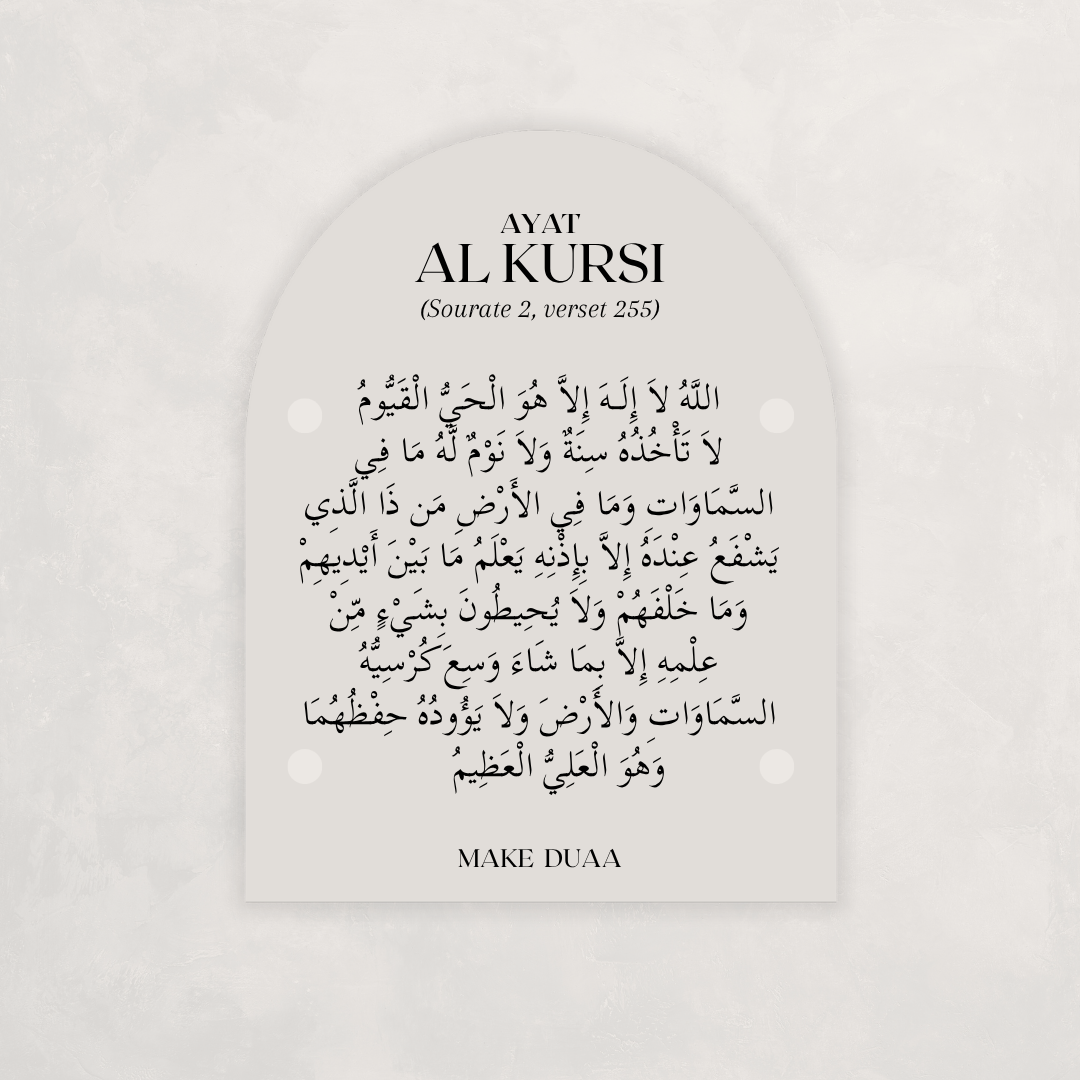 AYAT
AL KURSI
(Sourate 2, verset 255)
اللَّهُ لاَ إِلَـهَ إِلاَّ هُوَ الْحَيُّ الْقَيُّومُ
لاَ تَأْخُذُهُ سِنَةٌ وَلاَ نَوْمٌ لَّهُ مَا فِي
السَّمَاوَاتِ وَمَا فِي الأَرْضِ مَن ذَا الَّذِي
يَشْفَعُ عِنْدَهُ إِلاَّ بِإِذْنِهِ يَعْلَمُ مَا بَيْنَ أَيْدِيهِمْ
وَمَا خَلْفَهُمْ وَلاَ يُحِيطُونَ بِشَيْءٍ مِّنْ
عِلْمِهِ إِلاَّ بِمَا شَاءَ وَسِعَ كُرْسِيُّهُ
السَّمَاوَاتِ وَالأَرْضَ وَلاَ يَؤُودُهُ حِفْظُهُمَا
وَهُوَ الْعَلِيُّ الْعَظِيمُ
MAKE DUAA